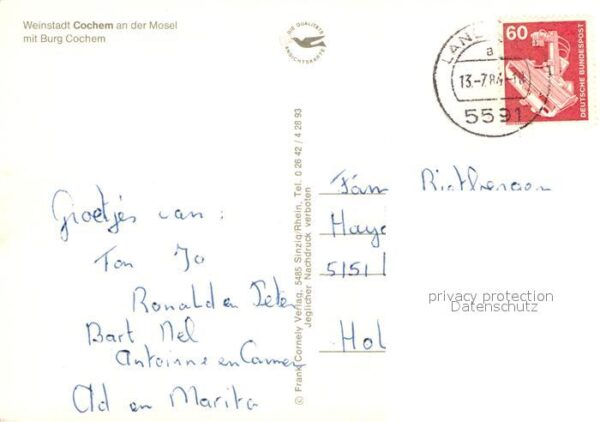 Weinstadt Cochem an der Mosel
mit Burg Cochem
DIE QUALITÄTS
ANSICHTSKARTE
LANZ
a
13.-7.84-18
5591
60
DEUTSCHE BUNDESPOST
Groetjes van:
Ton Jo
Ronald en Peter
Bart Nel
Antoinne en Carmen
Ad en Marita
© Frank Cornely Verlag, 5485 Sinzig/Rhein, Tel. 0 26 42 / 4 28 93
Jeglicher Nachdruck verboten
Fam
Haye
5151
Hol
privacy protection
Datenschutz